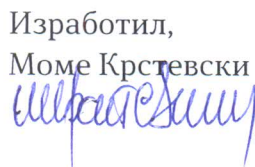 Изработил,
Моме Крстевски